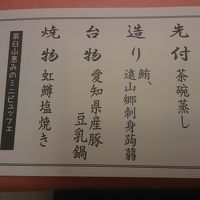 先付 茶碗蒸し
造り 鮪、遠山郷刺身蒟蒻
台物 愛知県産豚
豆乳鍋
焼物 虹鱒塩焼き
茶臼山恵みのミニビュッフェ